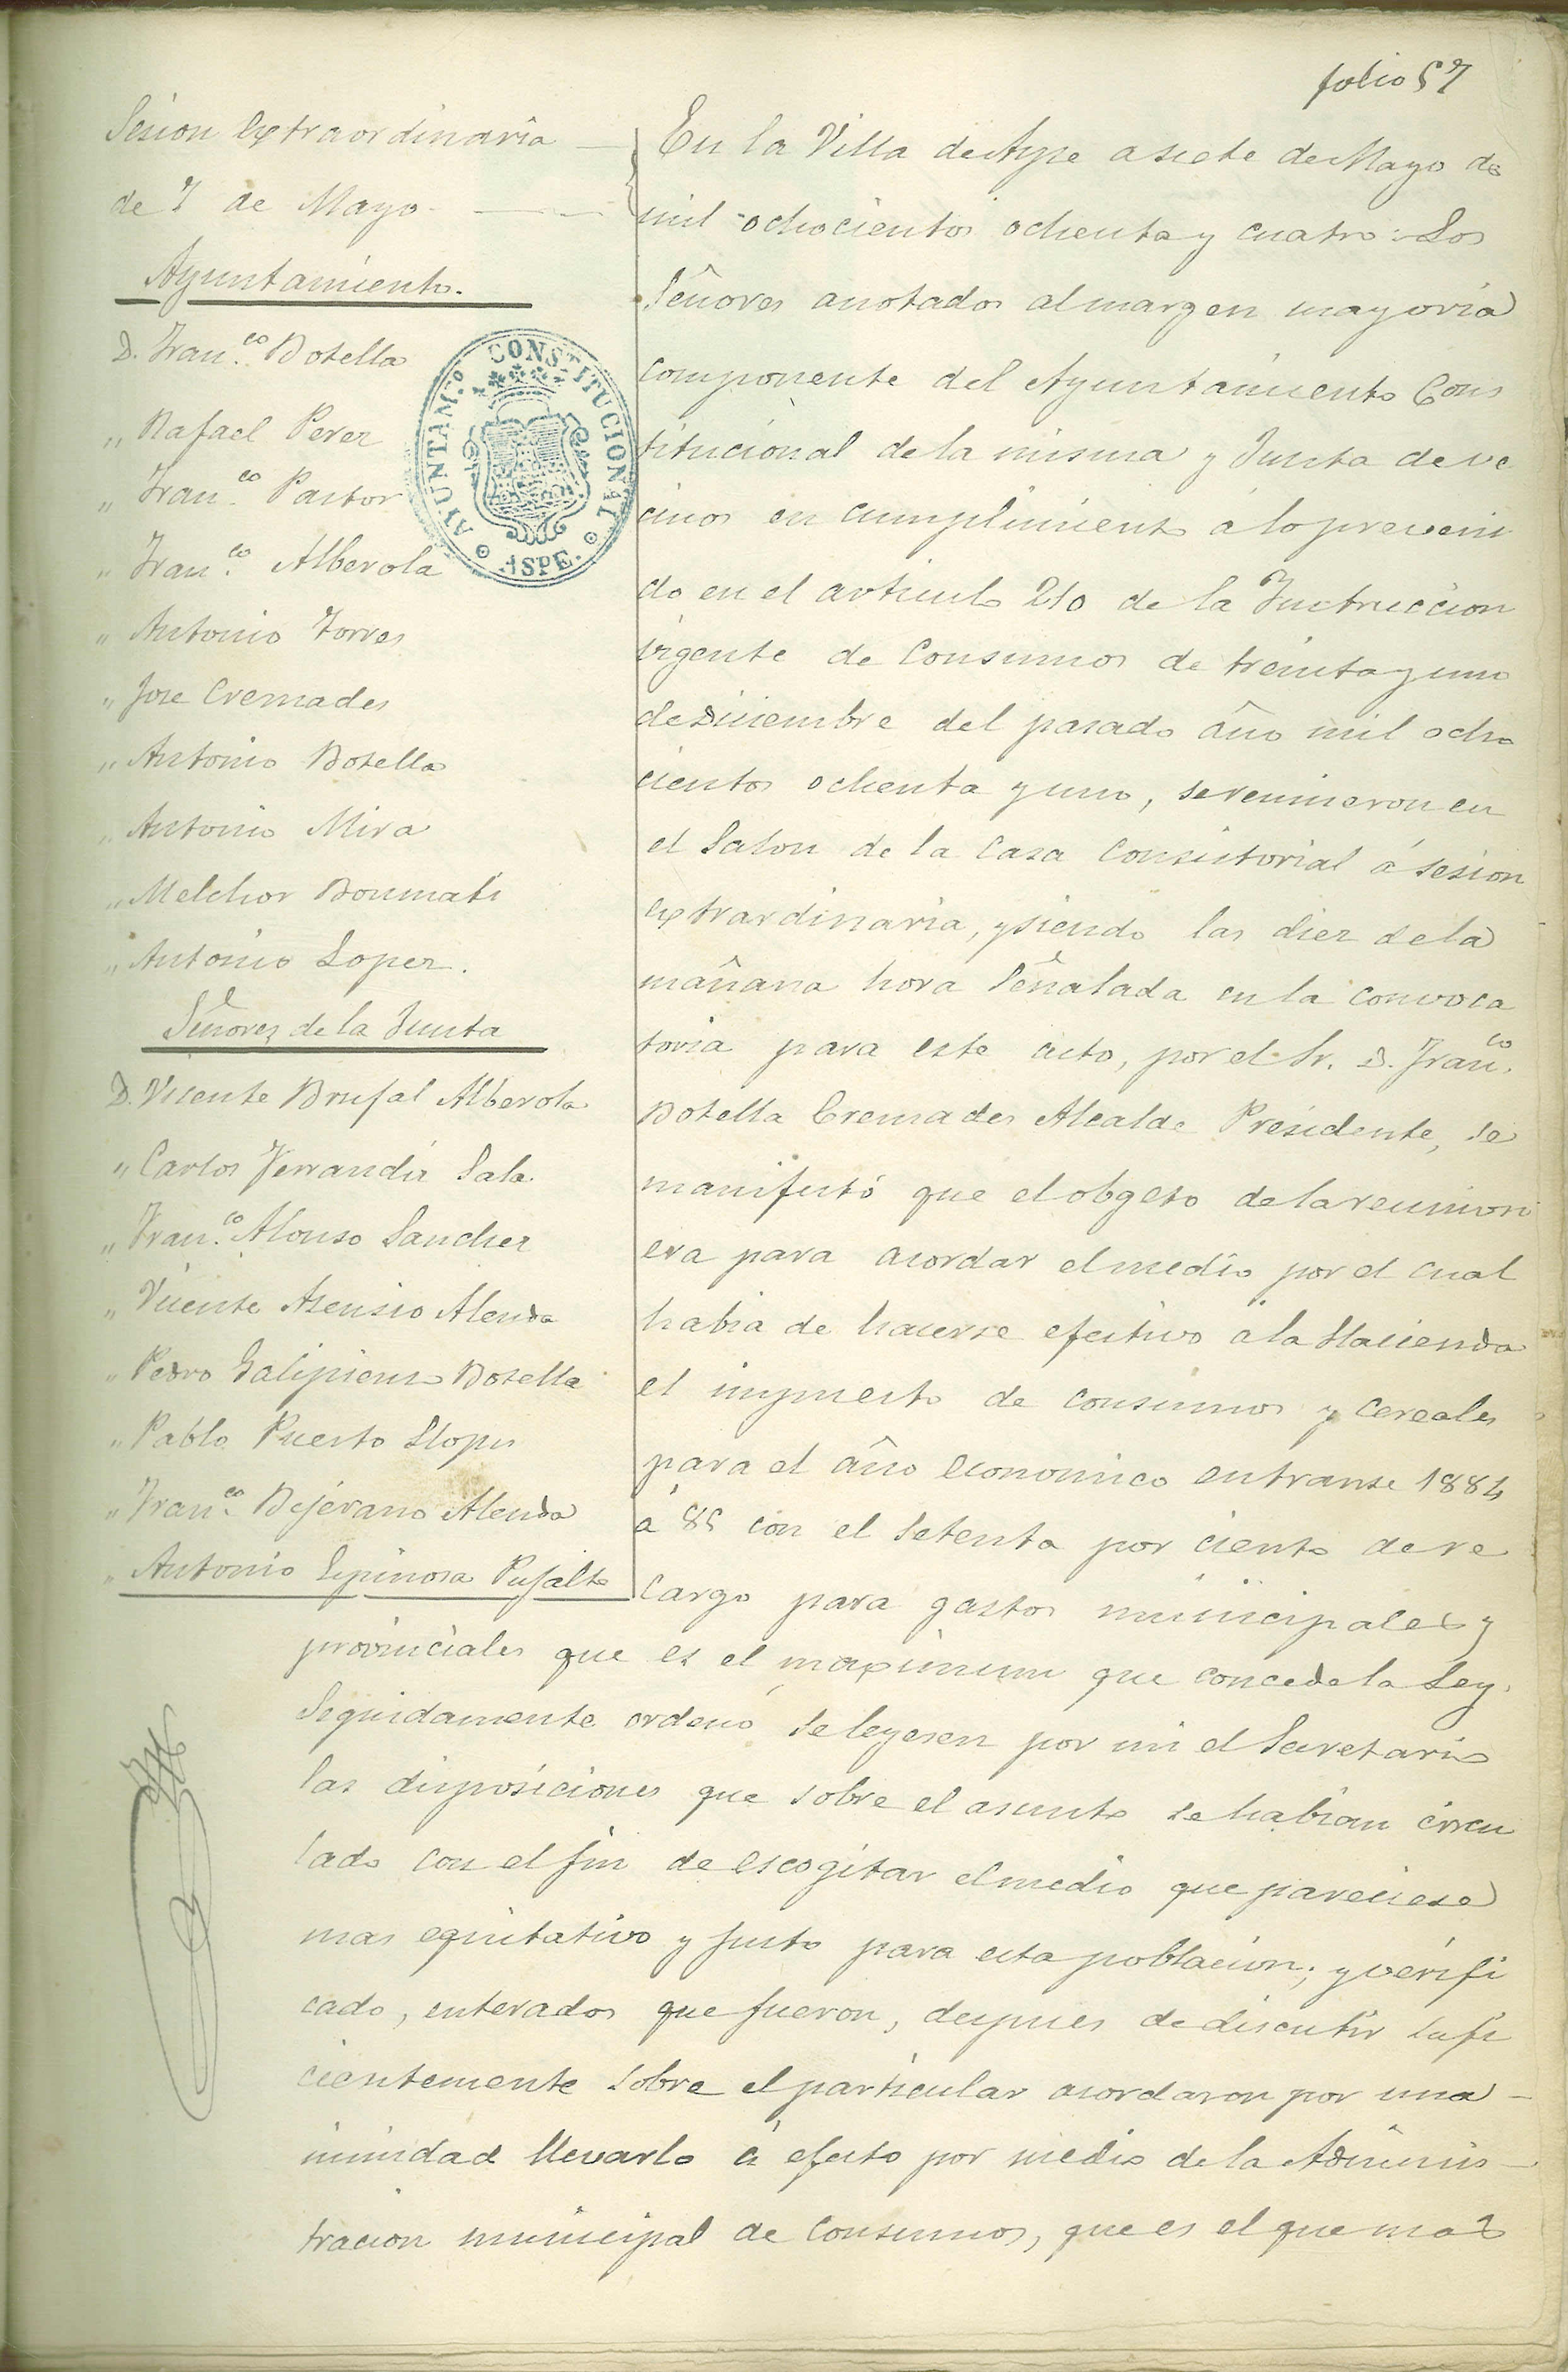 folio 57
Sesion extraordinaria
de 7 de Mayo.
Ayuntamiento.
D. Fran.co Botella
" Rafael Perez
" Fran.co Pastor
" Fran.co Alberola
" Antonio Torres
" Jose Cremades
" Antonio Botella
" Antonio Mira
" Melchor Boumati
" Antonio Lopez.
Señores de la Junta
D. Vicente Brufal Alberola
" Carlos Ferrandiz Sala
" Fran.co Alonso Sanchez
" Vicente Asensio Alenda
" Pedro Galipienso Botella
" Pablo Puerto Llopis
" Fran.co Bejerano Alenda
" Antonio Espinosa Pujalte
AYUNTAM.to CONSTITUCIONAL
ASPE.
En la Villa de Aspe a siete de Mayo de
mil ochocientos ochenta y cuatro: Los
Señores anotados al margen mayoria
componente del Ayuntamiento Cons
titucional de la misma y Junta de ve
cinos en cumplimiento á lo preveni
do en el articulo 210 de la Instruccion
vigente de Consumos de treinta y uno
de Diciembre del pasado año mil ocho
cientos ochenta y uno, se reunieron en
el Salon de la Casa Consistorial á sesion
extrardinaria, y siendo las diez de la
mañana hora señalada en la convoca
toria para este acto, por el Sr. D. Fran.co
Botella Cremades Alcalde Presidente, se
manifestó que el obgeto de la reunion
era para acordar el medio por el cual
habia de hacerse efectivo á la Hacienda
el impuesto de consumos y cereales
para el año economico entrante 1884
á 85 con el setenta por ciento de re
cargo para gastos municipales y
provinciales que es el maximum que concede la Ley.
Seguidamente ordenó se leyesen por mi el Secretario
las disposiciones que sobre el asunto se habian circu
lado con el fin de escogitar el medio que pareciese
mas equitativo y justo para esta poblacion; y verifi
cado, enterados que fueron, despues de discutir sufi
cientemente sobre el particular acordaron por una-
nimidad llevarlo á efecto por medio de la Adminis-
tracion municipal de Consumos, que es el que mas